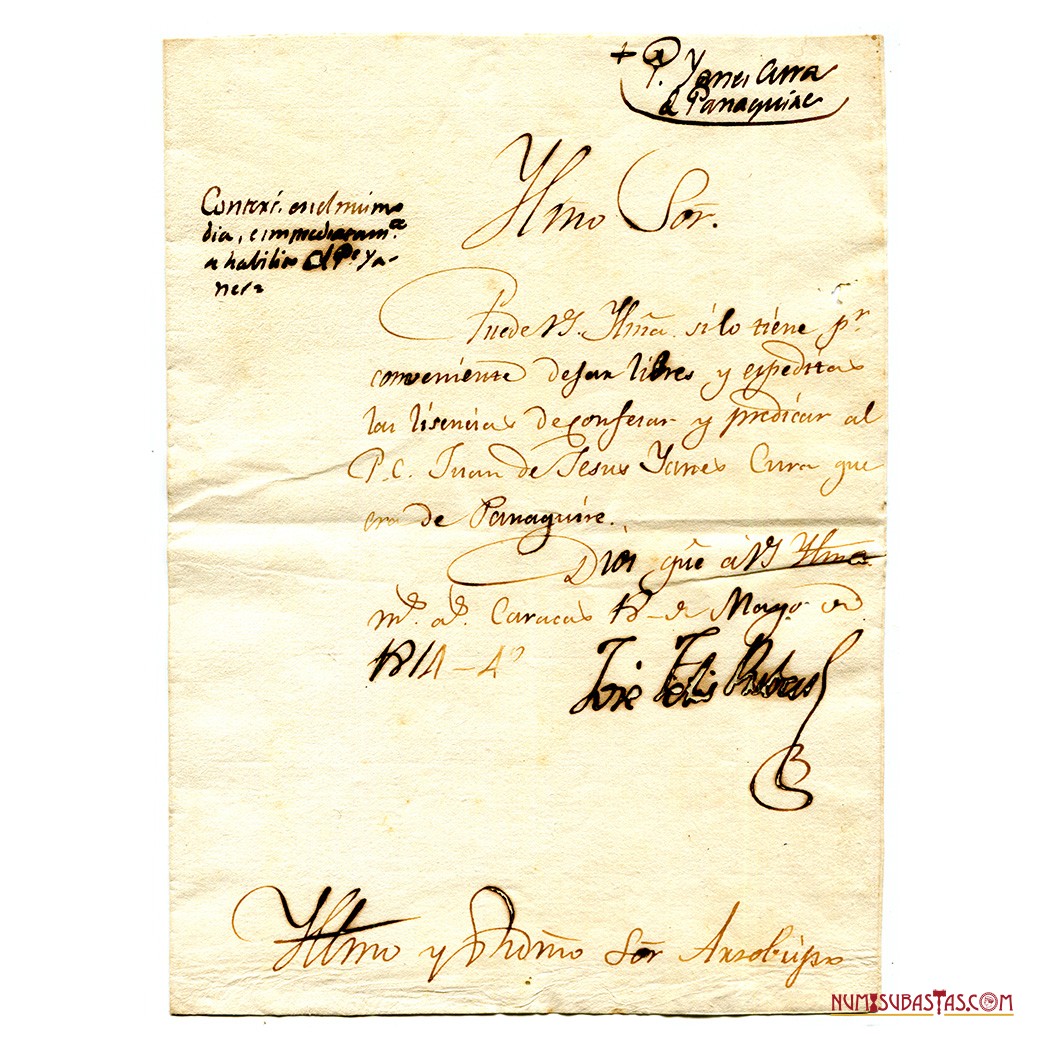 + P. Yanes Cura
d Panaquire
Ylmo Sor.
Contexté en el mismo
dia, e immediatamte
a habilité al Pe Ya-
nes
Puede VS. Ylma. si lo tiene pr
conveniente dejar libres y espeditas
las lisencias de confesar y predicar al
P. C. Juan de Jesus Yanes Cura que
era de Panaquire.
Dios gue á VS Ylma
ms. as. Caracas 18 de Mayo de
1814-4º
José Felis Ribas
Yltmo y Rdmo Sor Arzobispo
NUMISUBASTAS.COM